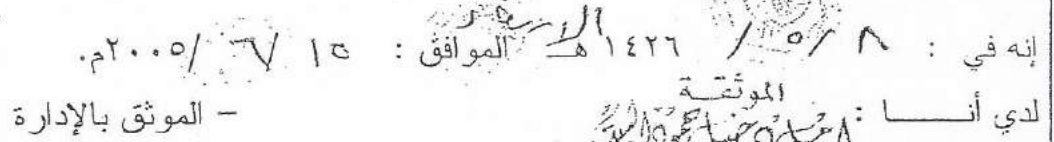 إنه في : ٨ / ٥ / ١٤٢٦ هـ الموافق : الأربعاء ١٥ / ٦ / ٢٠٠٥م.
الموثقة
لدي أنـــا : – الموثق بالإدارة